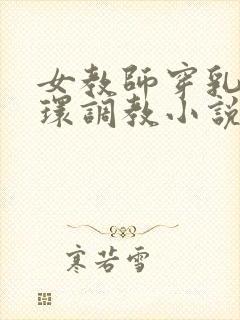 女教師穿乳
環調教小說
寒若雪